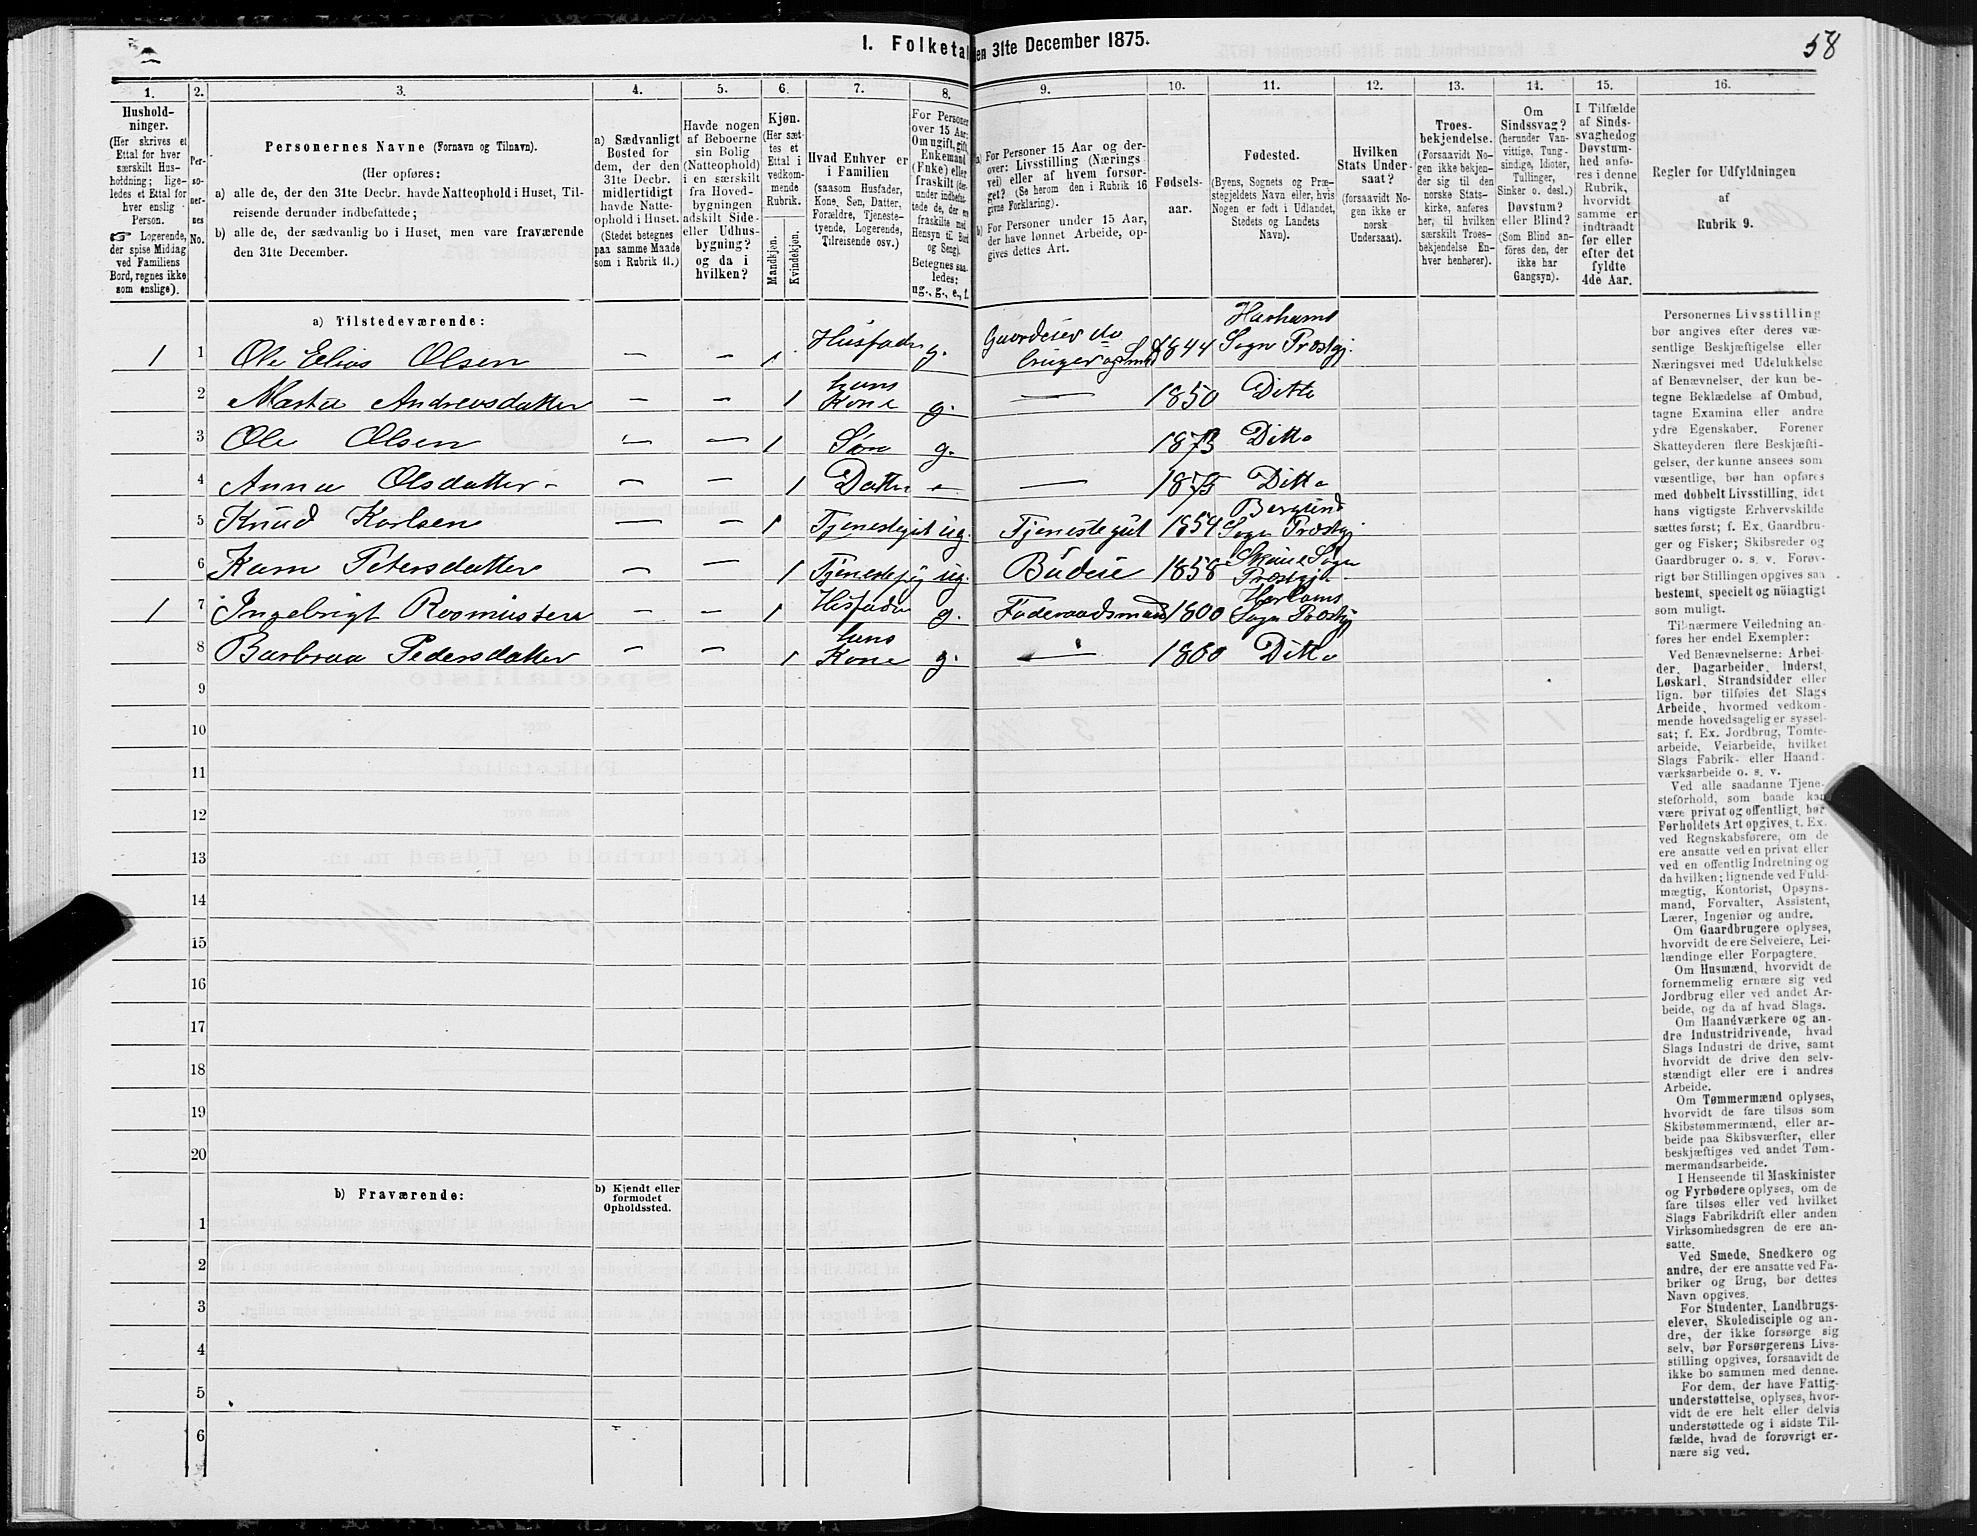 58
I. Folketal den 31te December 1875.
1. 2. 3. 4. 5. 6. 7. 8. 9. 10. 11. 12. 13. 14. 15. 16.
Hushold-
ninger.
(Her skrives et
Ettal for hver
særskilt Hus-
holdning; lige-
ledes et Ettal for
hver enslig
Person.
☞ Logerende,
der spise Middag
ved Familiens
Bord, regnes ikke
som enslige).
Per-
so-
ner-
nes
No.
Personernes Navne (Fornavn og Tilnavn).
(Her opføres:
a) alle de, der den 31te Decbr. havde Natteophold i Huset, Til-
reisende derunder indbefattede;
b) alle de, der sædvanlig bo i Huset, men vare fraværende
den 31te December.
a) Sædvanligt
Bosted for
dem, der den
31te Decbr.
midlertidigt
havde Natte-
ophold i Huset.
(Stedet betegnes
paa samme Maade
som i Rubrik 11.)
Havde nogen
af Beboerne
sin Bolig
(Natteophold)
i en særskilt
fra Hoved-
bygningen
adskilt Side-
eller Udhus-
bygning?
og da i
hvilken?
Kjøn.
(Her sæt-
tes et
Ettal i
vedkom-
mende
Rubrik.
Mandkjøn.
Kvindekjøn.
Hvad Enhver er
i Familien
(saasom Husfader,
Kone, Søn, Datter,
Forældre, Tjeneste-
tyende, Logerende,
Tilreisende osv.)
For Personer
over 15 Aar:
Om ugift, gift,
Enkemand
(Enke) eller
fraskilt (der-
under indbefat-
tede de, der er
fraskilte med
Hensyn til Bord
og Seng).
Betegnes saa-
ledes:
ug., g., e., f.
a) For Personer 15 Aar og der-
over: Livsstilling (Nærings-
vei) eller af hvem forsør-
get? (Se herom den i Rubrik 16
givne Forklaring).
b) For Personer under 15 Aar,
der have lønnet Arbeide, op-
gives dettes Art.
Fødsels-
aar.
Fødested.
(Byens, Sognets og Præ-
stegjeldets Navn eller, hvis
Nogen er født i Udlandet,
Stedets og Landets
Navn).
Hvilken
Stats Under-
saat?
(forsaavidt No-
gen ikke er
norsk
Undersaat).
Troes-
bekjendelse.
(Forsaavidt No-
gen ikke bekjen-
der sig til den
norske Stats-
kirke, anføres
her, til hvilken
særskilt Troes-
bekjendelse En-
hver henhører).
Om
Sindssvag?
(herunder Van-
vittige, Tung-
sindige, Idioter,
Tullinger,
Sinker o. desl.)
Døvstum?
eller Blind?
(Som Blind an-
føres den, der
ikke har
Gangsyn).
I Tilfælde
af Sinds-
svaghed og
Døvstum-
hed anfø-
res i denne
Rubrik,
hvorvidt
samme er
indtraadt
før eller
efter det
fyldte
4de Aar.
Regler for Udfyldningen
af
Rubrik 9.
a) Tilstedeværende:
1 1 Ole Elias Olsen — — 1 Husfader g. Gaardeier bruger og Smed 1844 Harhams Sogn Præstgj.
2 Marta Andreasdatter — — 1 hans Kone g. — 1850 Ditto
3 Ole Olsen — — 1 Søn g. 1873 Ditto
4 Anna Olsdatter — — 1 Datter — — 1875 Ditto
5 Knud Karlsen — — 1 Tjenestegut ug. Tjenestegut 1854 Sogn Præstgj
6 Karn Petersdatter — — 1 Tjenestepig ug. Budeie 1858 Sogn Præstgj.
1 7 Ingebrigt Rasmussen — — 1 Husfader g. Føderaadsmand 1800 Harhams Sogn Præstgj
8 Barbraa Pedersdatter — — 1 hans Kone g. — 1800 Ditto
9
10
11
12
13
14
15
16
17
18
19
20
b) Fraværende:
b) Kjendt eller
formodet
Opholdssted.
1
2
3
4
5
6
Personernes Livsstilling
bør angives efter deres væ-
sentlige Beskjæftigelse eller
Næringsvei med Udelukkelse
af Benævnelser, der kun be-
tegne Beklædelse af Ombud,
tagne Examina eller andre
ydre Egenskaber. Forener
Skatteyderen flere Beskjæfti-
gelser, der kunne ansees som
væsentlige, bør han opføres
med dobbelt Livsstilling, idet
hans vigtigste Erhvervskilde
sættes først; f. Ex. Gaardbru-
ger og Fisker; Skibsreder og
Gaardbruger o. s. v. Forøv-
rigt bør Stillingen opgives saa
bestemt, specielt og nøiagtigt
som muligt.
Til nærmere Veiledning an-
føres her endel Exempler:
Ved Benævnelserne: Arbei-
der, Dagarbeider, Inderst,
Løskarl, Strandsidder eller
lign. bør tilføies det Slags
Arbeide, hvormed vedkom-
mende hovedsagelig er syssel-
sat; f. Ex. Jordbrug, Tomte-
arbeide, Veiarbeide, hvilket
Slags Fabrik- eller Haand-
værksarbeide o. s. v.
Ved alle saadanne Tjene-
steforhold, som baade kan
være privat og offentligt, bør
Forholdets Art opgives, t. Ex.
ved Regnskabsførere, om de
ere ansatte ved en privat eller
ved en offentlig Indretning og
da hvilken; lignende ved Fuld-
mægtig, Kontorist, Opsyns-
mand, Forvalter, Assistent,
Lærer, Ingeniør og andre.
Om Gaardbrugere oplyses,
hvorvidt de ere Selveiere, Lei-
lændinge eller Forpagtere.
Om Husmænd, hvorvidt de
fornemmelig ernære sig ved
Jordbrug eller ved andet Ar-
beide, og da af hvad Slags.
Om Haandværkere og an-
dre Industridrivende, hvad
Slags Industri de drive, samt
hvorvidt de drive den selv-
stændigt eller ere i andres
Arbeide.
Om Tømmermænd oplyses,
hvorvidt de fare tilsøs som
Skibstømmermænd, eller ar-
beide paa Skibsværfter, eller
beskjæftiges ved andet Tøm-
mermandsarbeide.
I Henseende til Maskinister
og Fyrbødere oplyses, om de
fare tilsøs eller ved hvilket
Slags Fabrikdrift eller anden
Virksomhedsgren de ere an-
satte.
Ved Smede, Snedkere og
andre, der ere ansatte ved Fa-
briker og Brug, bør dettes
Navn opgives.
For Studenter, Landbrugs-
elever, Skoledisciple og an-
dre, der ikke forsørge sig
selv, bør Forsørgerens Livs-
stilling opgives, forsaavidt de
ikke bo sammen med denne.
For dem, der have Fattig-
understøttelse, oplyses, hvor-
vidt de ere helt eller delvis
understøttede og i sidste Til-
fælde, hvad de forøvrigt er-
nære sig ved.